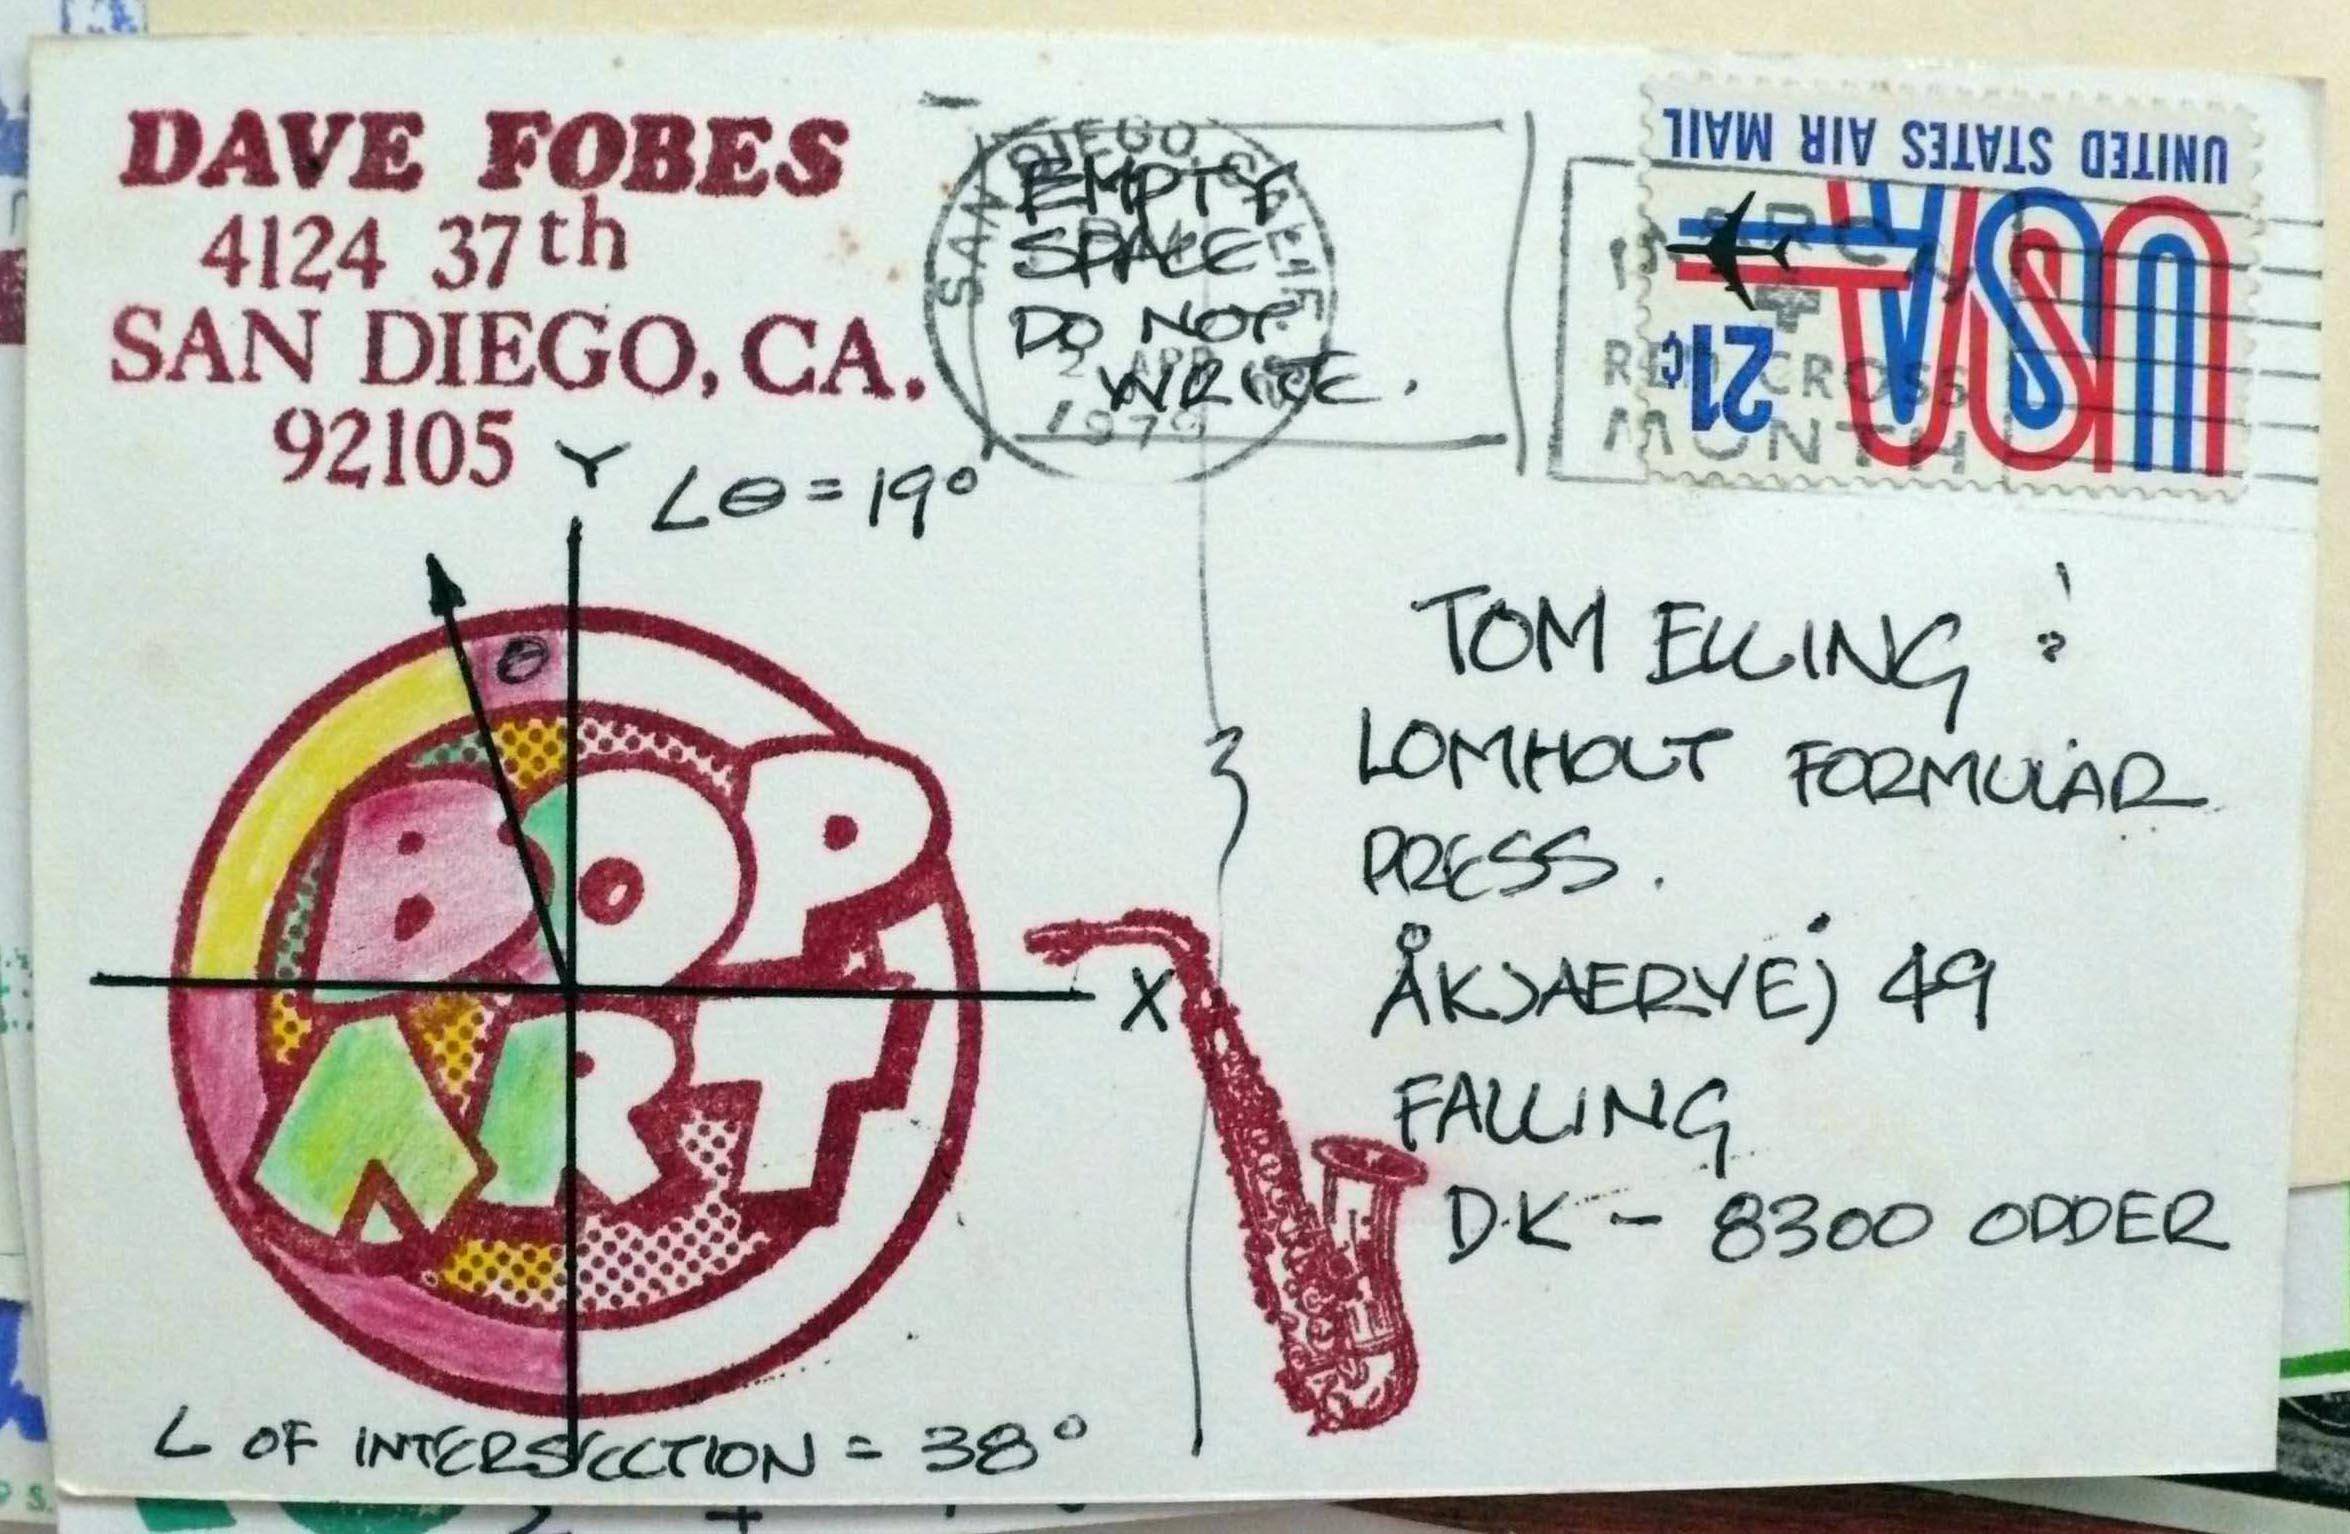 DAVE FOBES
4124 37th
SAN DIEGO, CA.
92105
SAN DIEGO CALIF
2 APR
1979
EMPTY
SPACE
DO NOT
WRITE.
UNITED STATES AIR MAIL
USA
21¢
RED CROSS
MONTH
Y
∠θ = 19°
θ
BOP
ART
X
∠ OF INTERSECTION = 38°
TOM ELLING
LOMHOLT FORMULAR
PRESS.
ÅKJAERVEJ 49
FALLING
DK - 8300 ODDER